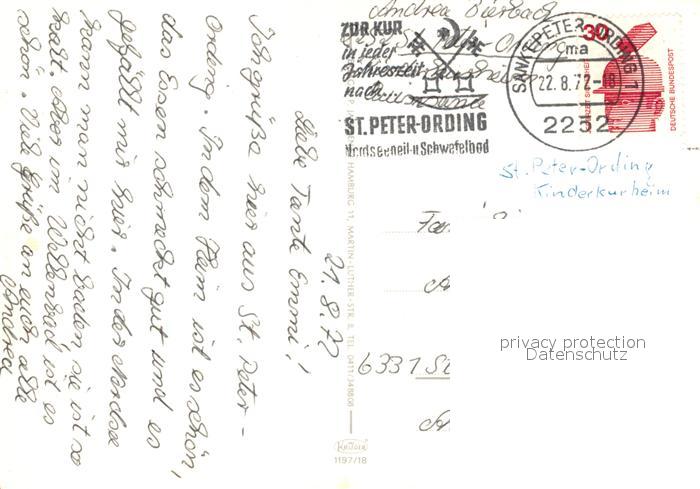 21.8.72
Liebe Tante Emmi!
Ich grüße hier aus St. Peter-
Ording. In dem Heim ist es schön,
das Essen schmeckt gut und es
gefällt mir hier. In der Nordsee
kann man nicht baden sie ist so
kalt. Aber im Wellenbad ist es
schön. Viele Grüße an euch alle
Andrea
Andrea Bierbach
ZUR KUR
in jeder
Jahreszeit
nach
ST. PETER-ORDING
Nordseeheil-u Schwefelbad
SANKT PETER-ORDING 1
ma
22.8.72-18
2252
30
DEUTSCHE BUNDESPOST
St. Peter-Ording
Kinderkurheim
Fa
6331 St
HAMBURG 11, MARTIN-LUTHER-STR. 8, TEL. 0411/348808
Krüger
1197/18
privacy protection
Datenschutz